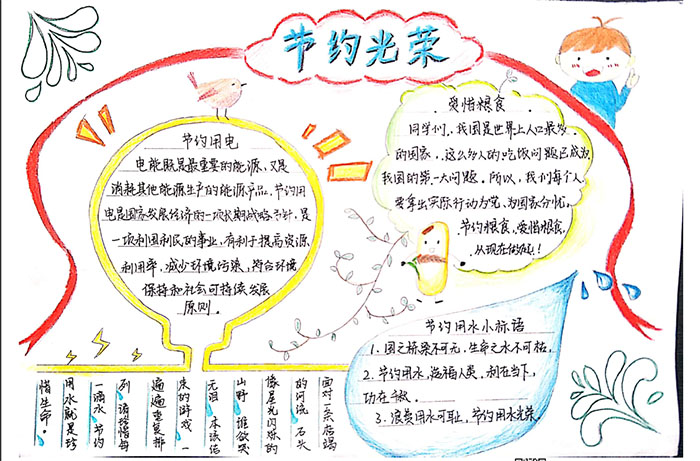 节约光荣
节约用电
电能既是最重要的能源，又是
消耗其他能源生产的能源产品。节约用
电是国家发展经济的一项长期战略方针，是
一项利国利民的事业，有利于提高资源
利用率，减少环境污染，符合环境
保持和社会可持续发展
原则。
爱惜粮食
同学们，我国是世界上人口最多
的国家，这么多人的吃饭问题已成为
我国的第一大问题。所以，我们每个人
要拿出实际行动为党、为国家分忧，
节约粮食，爱惜粮食，
从现在做起！
节约用水小标语
1. 国之栋梁不可无，生命之水不可枯。
2. 节约用水，造福人类，利在当下，
功在千秋。
3. 浪费用水可耻，节约用水光荣。
面对一条枯竭
的河流，石头
像星光闪烁的
山野，谁欲哭
无泪，本该结
束的游戏，一
遍遍重复排
列，请珍惜每
一滴水，节约
用水就是珍
惜生命。